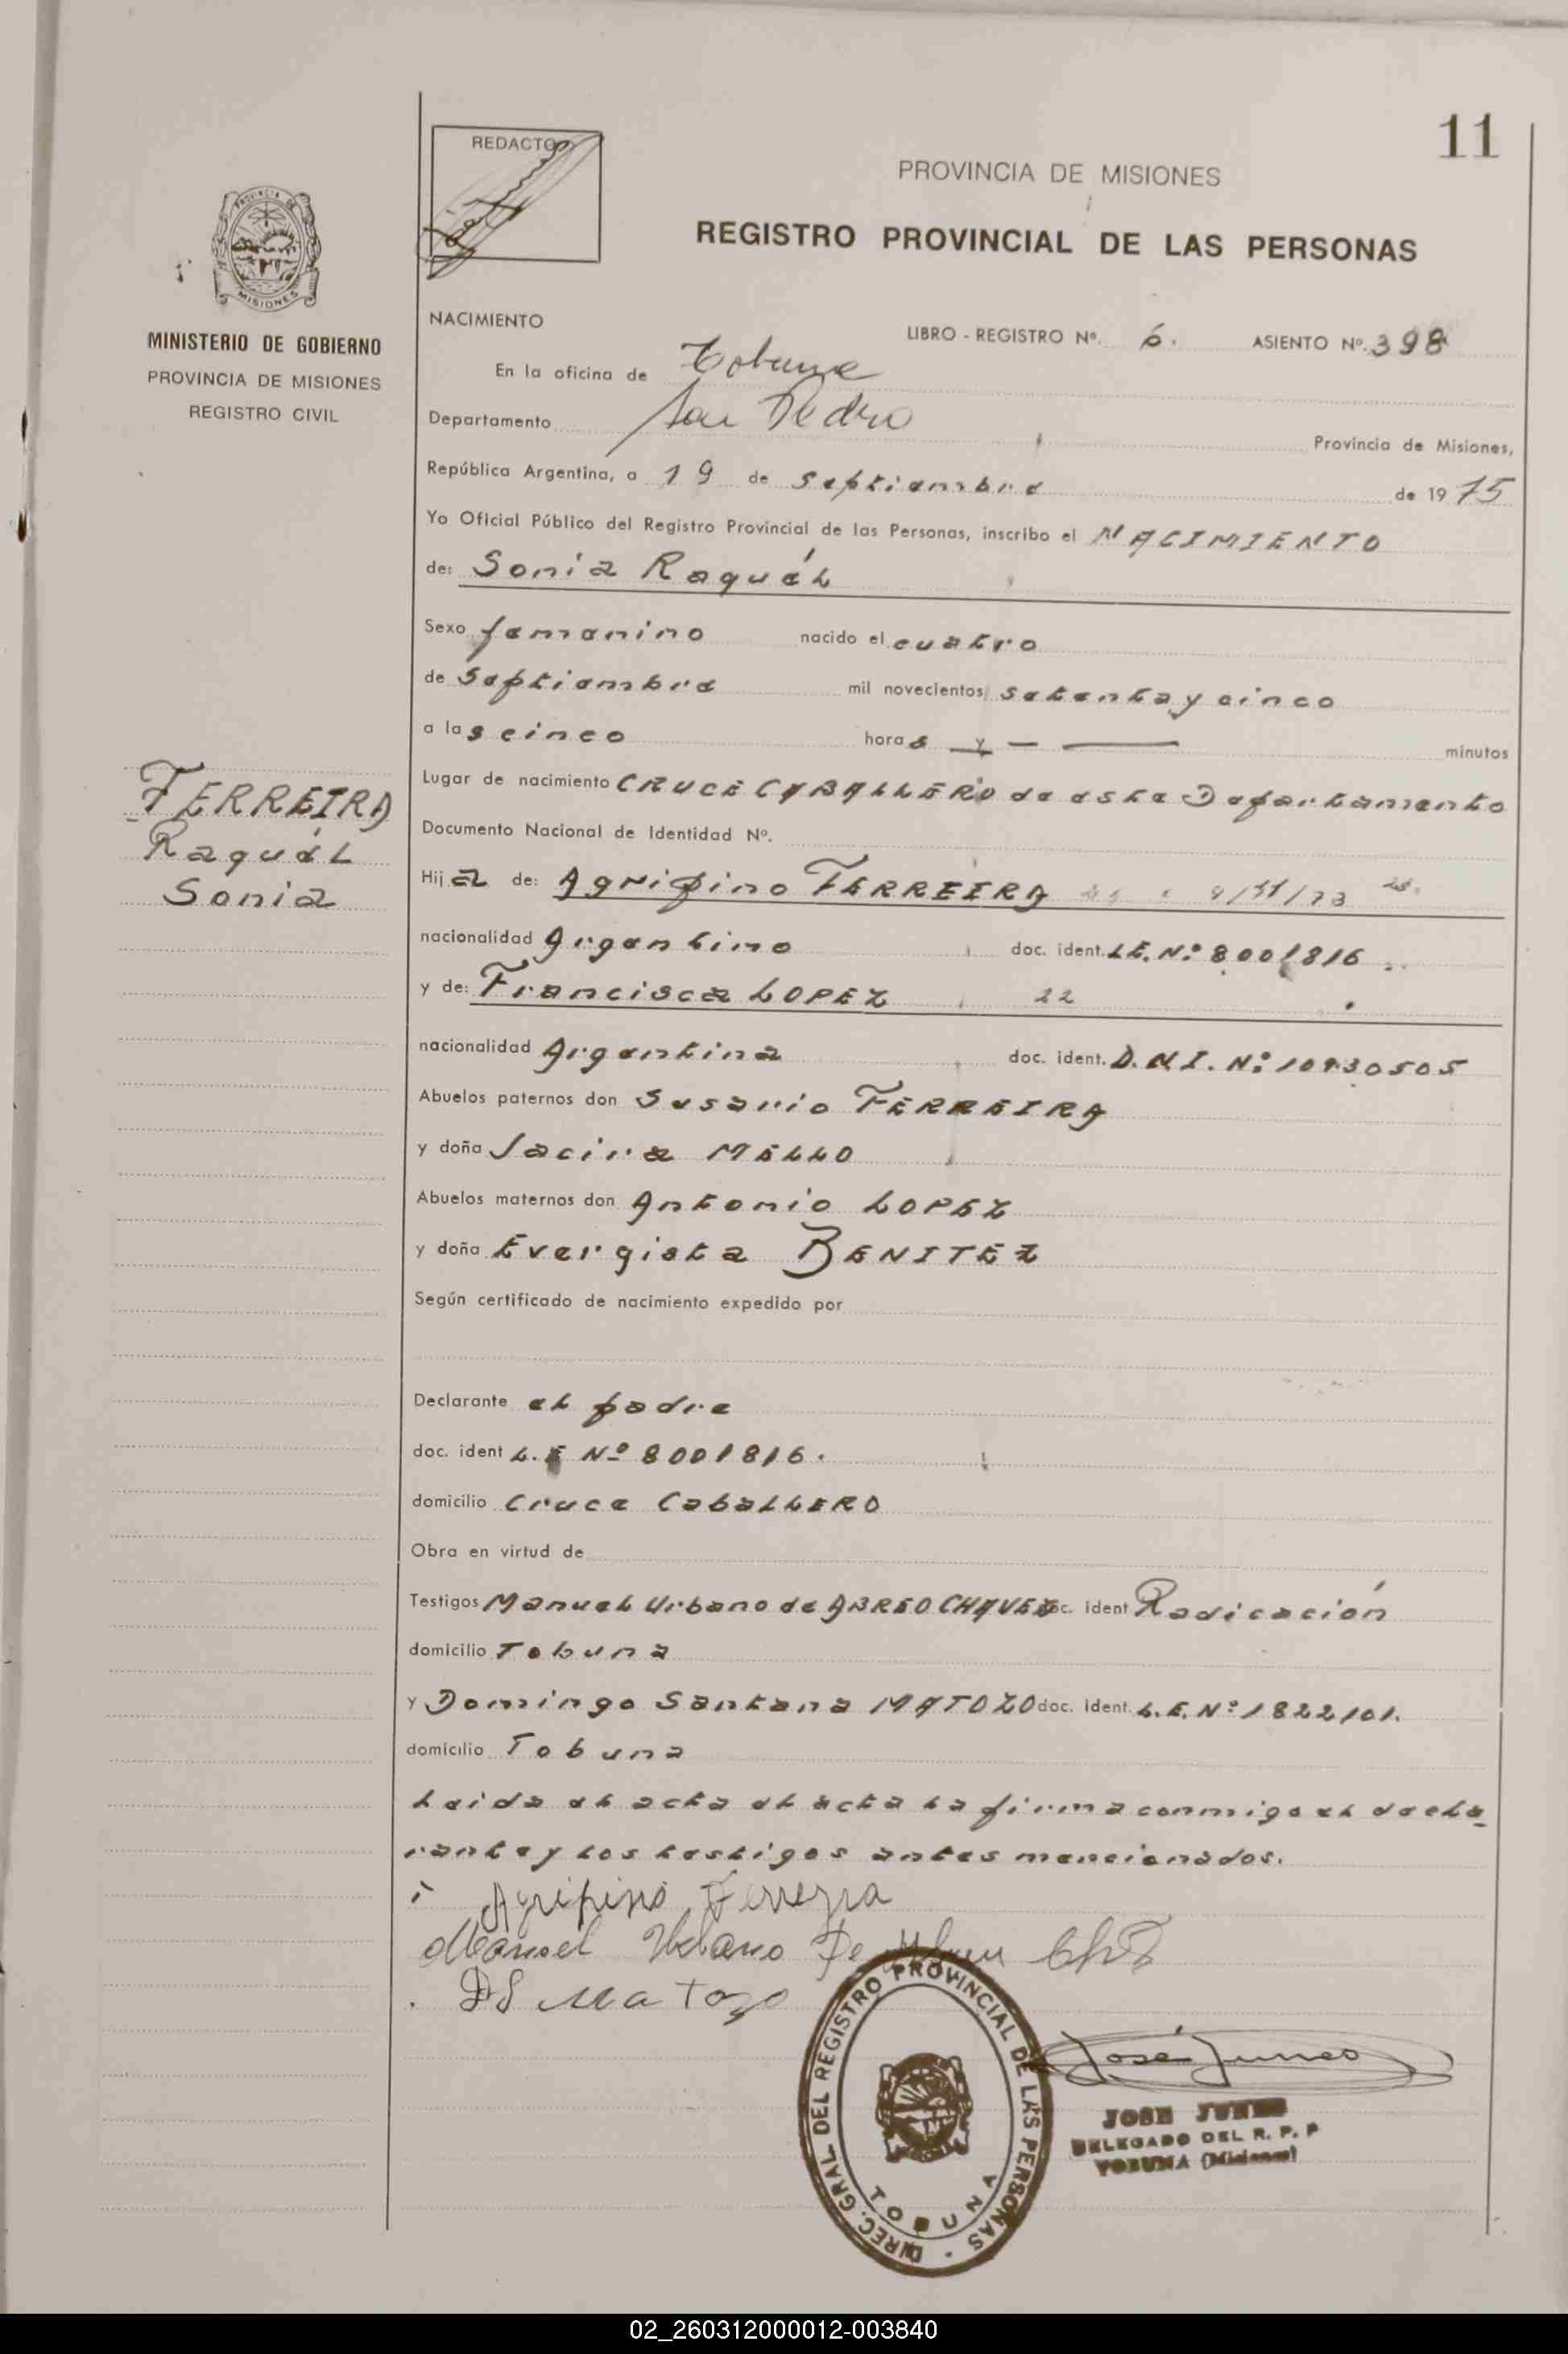 11
REDACTOR
PROVINCIA DE MISIONES
REGISTRO PROVINCIAL DE LAS PERSONAS
PROVINCIA DE MISIONES
MINISTERIO DE GOBIERNO
PROVINCIA DE MISIONES
REGISTRO CIVIL
NACIMIENTO
LIBRO - REGISTRO Nº. 6. ASIENTO Nº. 398
En la oficina de Tobuna
Departamento San Pedro Provincia de Misiones,
República Argentina, a 19 de septiembre de 1975
Yo Oficial Público del Registro Provincial de las Personas, inscribo el NACIMIENTO
de: Sonia Raquél
Sexo femenino nacido el cuatro
de septiembre mil novecientos setenta y cinco
a las cinco horas y — — minutos
Lugar de nacimiento CRUCE CABALLERO de este Departamento
FERREIRA
Raquél
Sonia
Documento Nacional de Identidad Nº.
Hija de: Agripino FERREIRA
nacionalidad Argentino doc. ident. L.E. Nº 8001816
y de: Francisca LOPEZ 22
nacionalidad Argentina doc. ident. D.N.I. Nº 10930505
Abuelos paternos don Susario FERREIRA
y doña Jacira MELLO
Abuelos maternos don Antonio LOPEZ
y doña Evergista BENITEZ
Según certificado de nacimiento expedido por
Declarante el padre
doc. ident L.E Nº 8001816.
domicilio Cruce CabaLLERO
Obra en virtud de
Testigos Manuel Urbano de ABREO CHAVEZ doc. ident Radicación
domicilio Tobuna
y Domingo Santana MATOZO doc. ident. L.E. Nº 1822101.
domicilio Tobuna
Leida el acta el acta la firma conmigo el decla-
rante y los testigos antes mencionados.
Agripino Ferreyra
Manuel Urbano De
DS Matozo
DIREC. GRAL. DEL REGISTRO PROVINCIAL DE LAS PERSONAS - TOBUNA
José Junes
JOSE JUNES
DELEGADO DEL R. P. P
TOBUNA (Misiones)
02_260312000012-003840